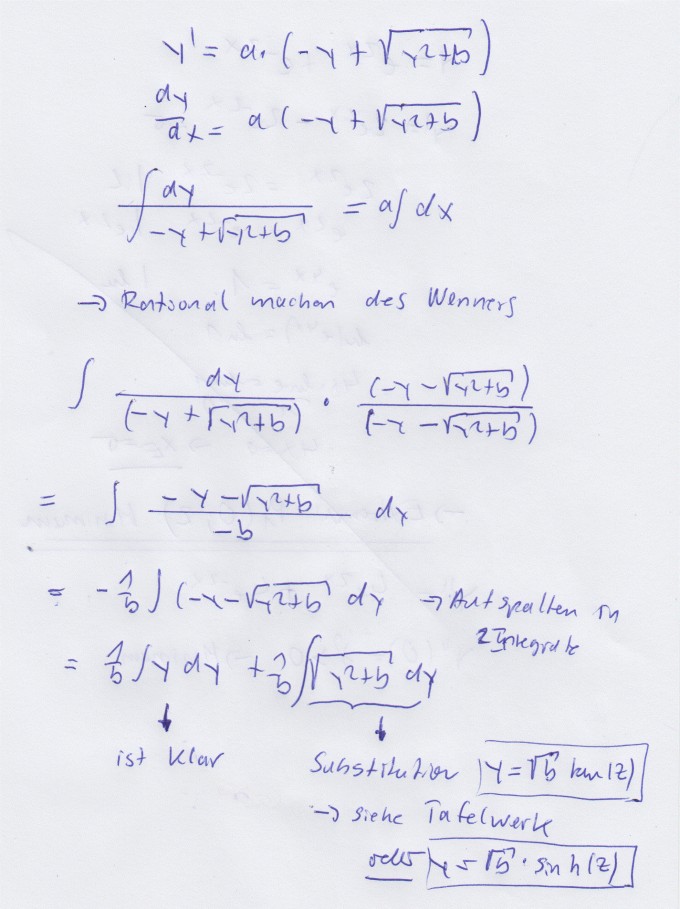 y' = a · (-y + √(y²+b))
dy/dx = a (-y + √(y²+b))
∫ dy / (-y + √(y²+b)) = a ∫ dx
→ Rational machen des Nenners
∫ dy / (-y + √(y²+b)) · (-y - √(y²+b)) / (-y - √(y²+b))
= ∫ (-y - √(y²+b)) / -b dy
= - 1/b ∫ (-y - √(y²+b) dy → Aufspalten in
2 Integrale
= 1/b ∫ y dy + 1/b ∫ √(y²+b) dy
↓ ↓
ist klar Substitution y = √b tan(z)
→ siehe Tafelwerk
oder y = √b · sinh(z)